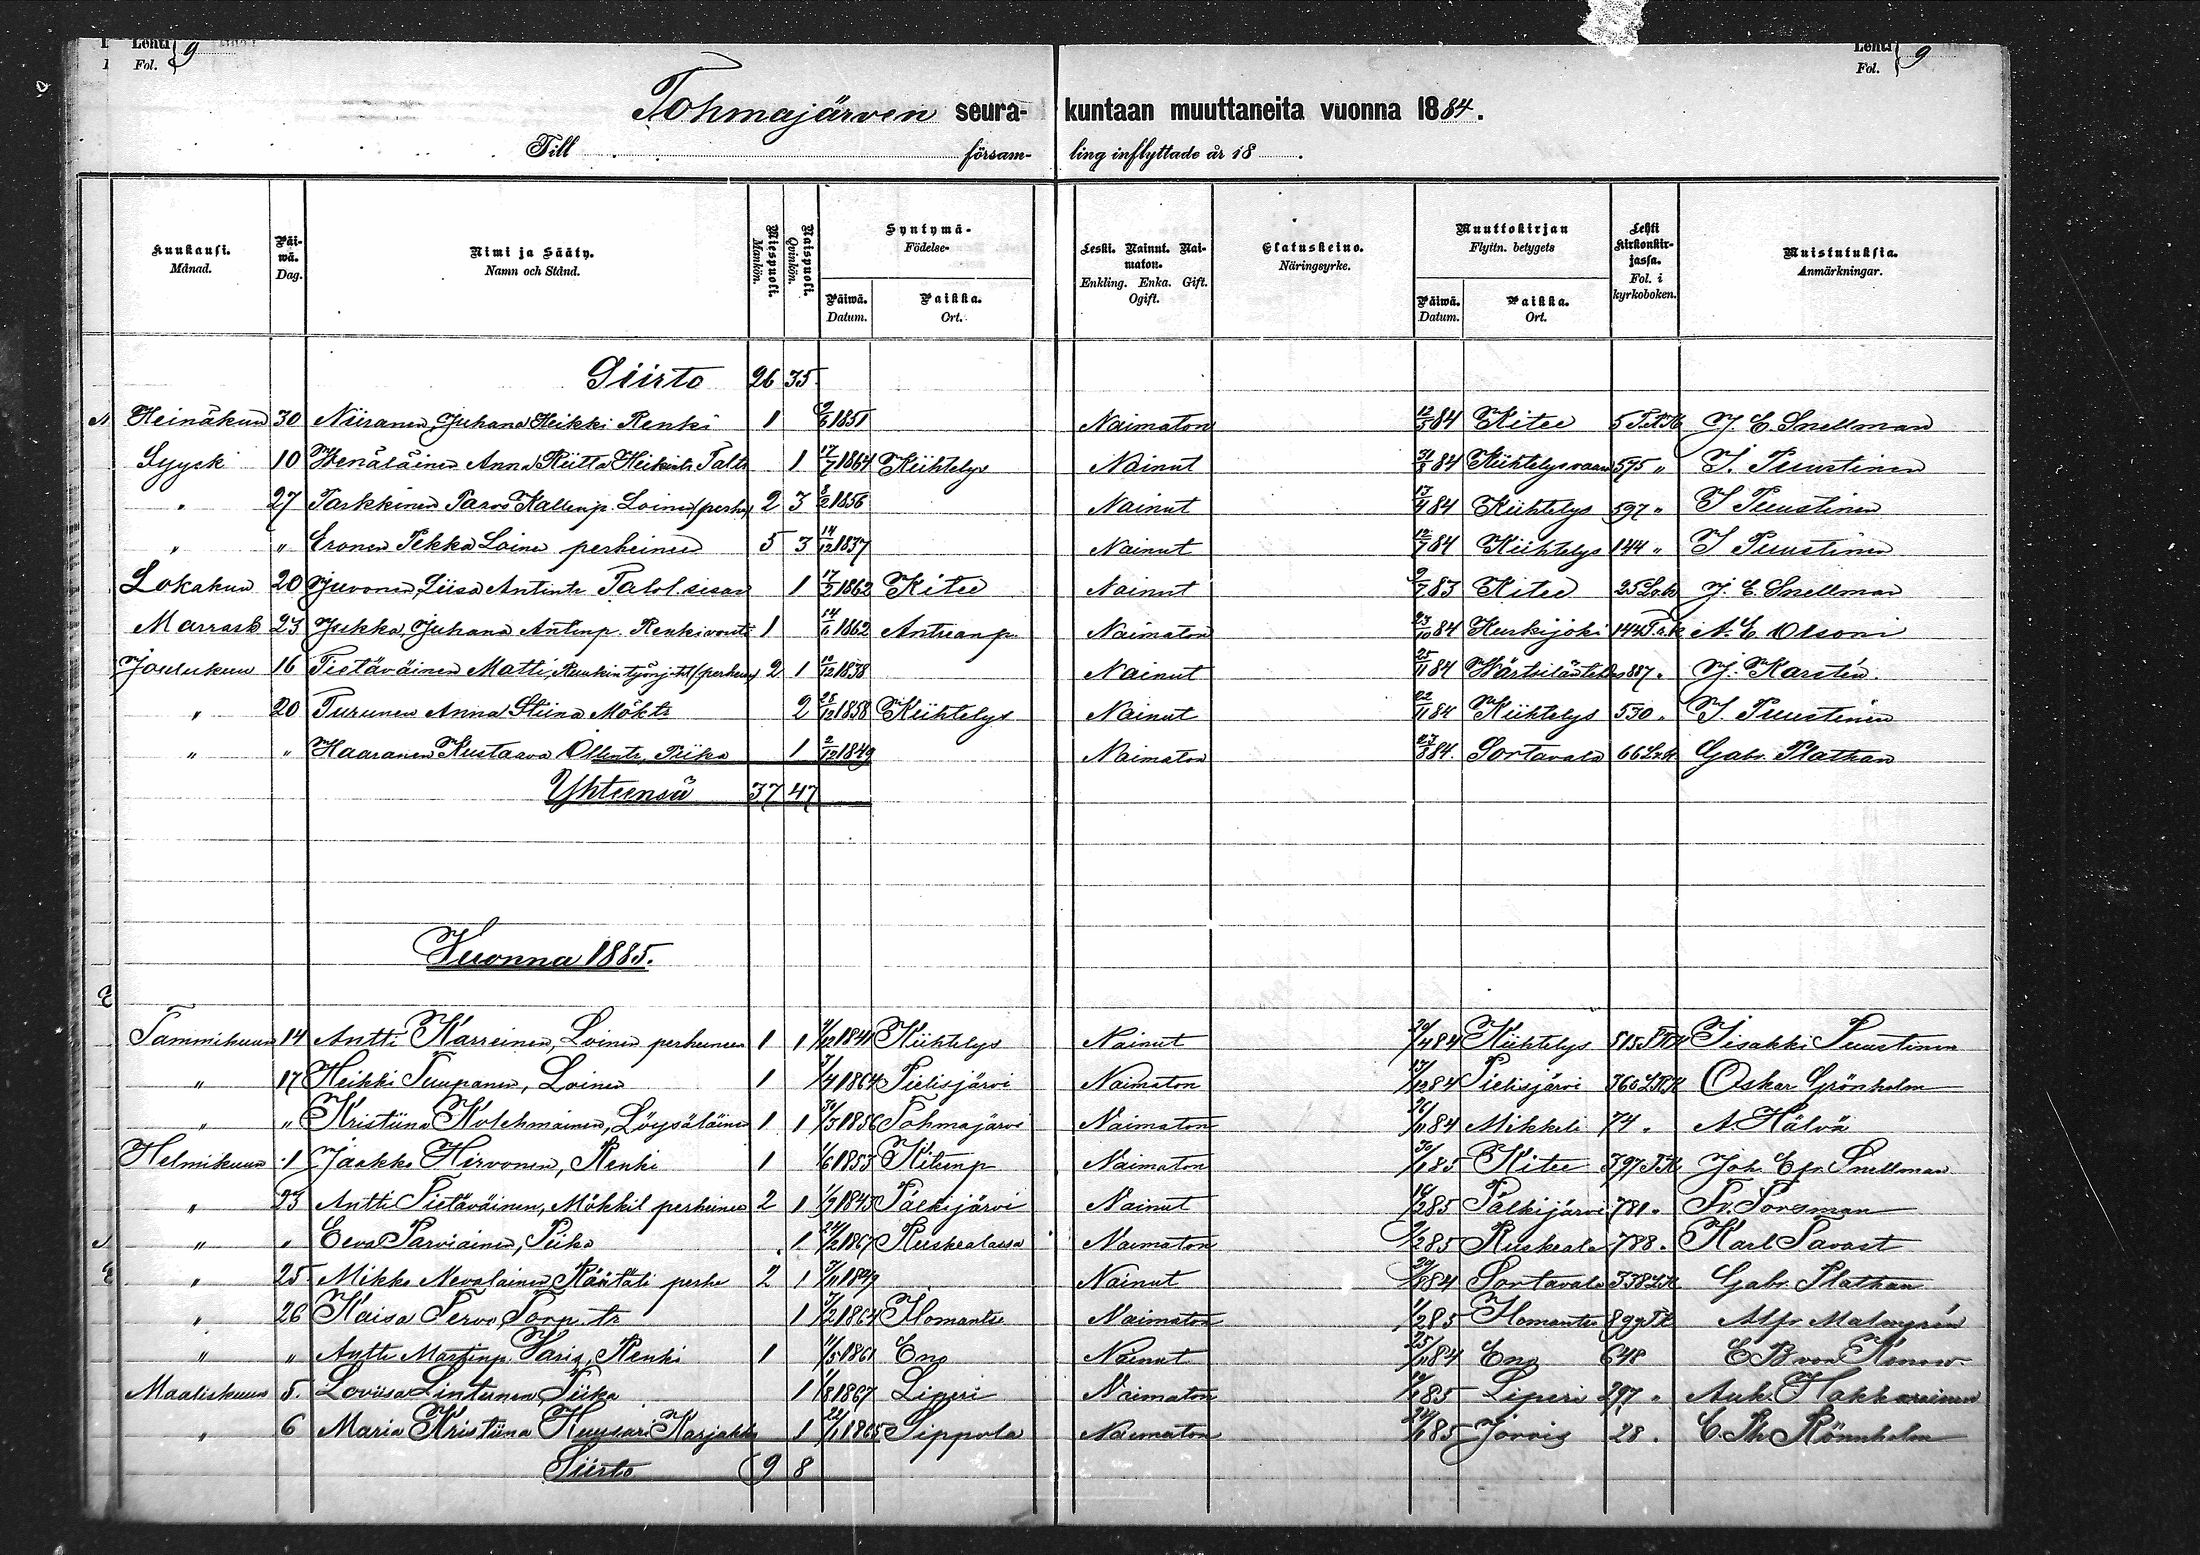 Lehti 9
Fol.
Lehti 9
Fol.
Tohmajärven seura- kuntaan muuttaneita vuonna 1884.
Till församling inflyttade år 18 .
Kuukausi. Månad. Päiwä. Dag. Nimi ja Sääty. Namn och Stånd. Miespuoli. Mankön. Naispuoli. Qvinkön. Syntymä- Födelse- Päiwä. Datum. Paikka. Ort. Leski. Nainut. Naimaton. Enkling. Enka. Gift. Ogift. Elatuskeino. Näringsyrke. Muuttokirjan Flyttn. betygets Päiwä. Datum. Paikka. Ort. Lehti Kirkonkirjassa. Fol. i kyrkoboken. Muistutuksia. Anmärkningar.
Siirto 26 35
Heinäkuu 30 Niiranen, Juhana Heikki Renki 1 9/6 1851 Naimaton 12/5 84 Kitee 5 J. E. Snellman
Syysk 10 Wenäläinen Anna Riitta Heikintr 1 17/7 1864 Kiihtelys Nainut 31/8 84 Kiihtelysvaara 595 " I. Puustinen
" 27 Parkkinen Paavo Kallenp. Loinen perhe 2 3 8/2 1856 Nainut 13/9 84 Kiihtelys 597 " I Puustinen
" " Eronen Pekka Loinen perheineen 5 3 14/12 1837 Nainut 12/7 84 Kiihtelys 144 " I Puustinen
Lokakuu 20 Juvonen, Liisa Antintr Talol. sisar 1 17/5 1862 Kitee Nainut 9/7 83 Kitee 25 J. E. Snellman
Marrask 23 Jukka, Juhana Antinp. Renkivouti 1 14/6 1862 Antreanp Naimaton 23/10 84 Kurkijoki 144 A. E. Olsoni
Joulukuu 16 Pietäväinen Matti, Ruukin työnj. 2 1 10/12 1838 Nainut 25/11 84 Wärtsilän 887 " J. Karstén.
" 20 Turunen Anna Stiina Mökts 2 28/12 1858 Kiihtelys Nainut 22/11 84 Kiihtelys 530 " I. Puustinen
" " Haaranen Kustaava Ollintr, Piika 1 2/12 1849 Naimaton 23/8 84. Sortavala 66 Gabr. Plathan
Yhteensä 37 47
Vuonna 1885.
Tammikuu 14 Antti Karreinen, Loinen perheineen 1 1 1/12 1841 Kiihtelys Nainut 29/11 84 Kiihtelys 815 Iisakki Puustinen
" 17 Heikki Puupanen, Loinen 1 3/4 1864 Pielisjärvi Naimaton 13/12 84 Pielisjärvi 360 Oskar Grönholm
" " Kristiina Kolehmainen, Löysäläinen 1 1 30/3 1856 Tohmajärvi Naimaton 26/11 84 Mikkeli 74 " A. Hälvä
Helmikuu 1 Jaakko Hirvonen, Renki 1 1/6 1853 Kiteenp Naimaton 30/1 85 Kitee 397 Joh. Efr. Snellman
" 23 Antti Pietäväinen, Mökkil perheineen 2 1 1/9 1843 Pälkijärvi Nainut 16/2 85 Pälkijärvi 781 " Fr. Forsman
" " Eeva Parviainen, Piika 1 24/2 1867 Ruskealassa Naimaton 9/2 85 Ruskeala 788 " Karl Savast
" 25 Mikko Nevalainen Räätäli perhe 2 1 7/11 1849 Nainut 84 Sortavala 338 Gabr. Plathan
" 26 Kaisa Tervo, 1 3/2 1864 Ilomantsi Naimaton 1/2 85 Ilomantsi 899 Alfr. Malmgrén
" " Antti Martinp. Varis, Renki 1 1/5 1861 Eno Nainut 25/11 84 Eno 648 E B von Knorr
Maaliskuu 5. Loviisa Lintunen, Piika 1 1/8 1867 Liperi Naimaton 85 Liperi 297 " Auk. Hakkarainen
" 6 Maria Kristiina Kuusari Karjakko 1 22/1 1865 Sippola Naimaton 85 Jorois 28 " C. Th. Rönnholm
Siirto 9 8